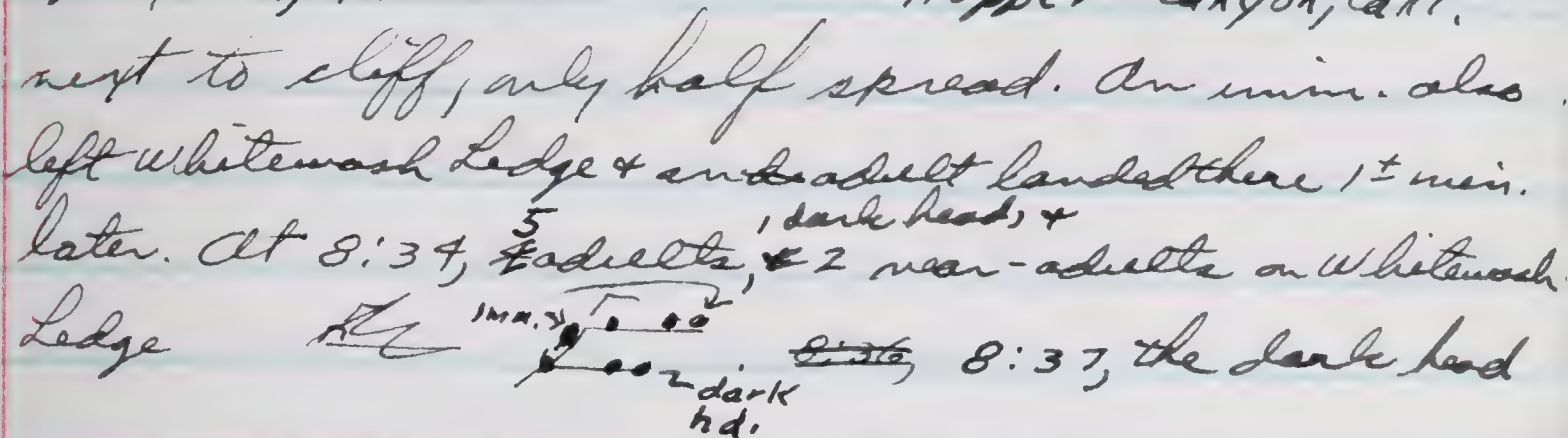 Hopper Canyon, Cali.
next to cliff, only half spread. An imm. also
left Whitewash Ledge & an adult landed there 1± min.
later. At 8:34, 5 adults, 1 dark head, & 2 near-adults on Whitewash
Ledge imm. dark hd. 8:36, 8:37, the dark head